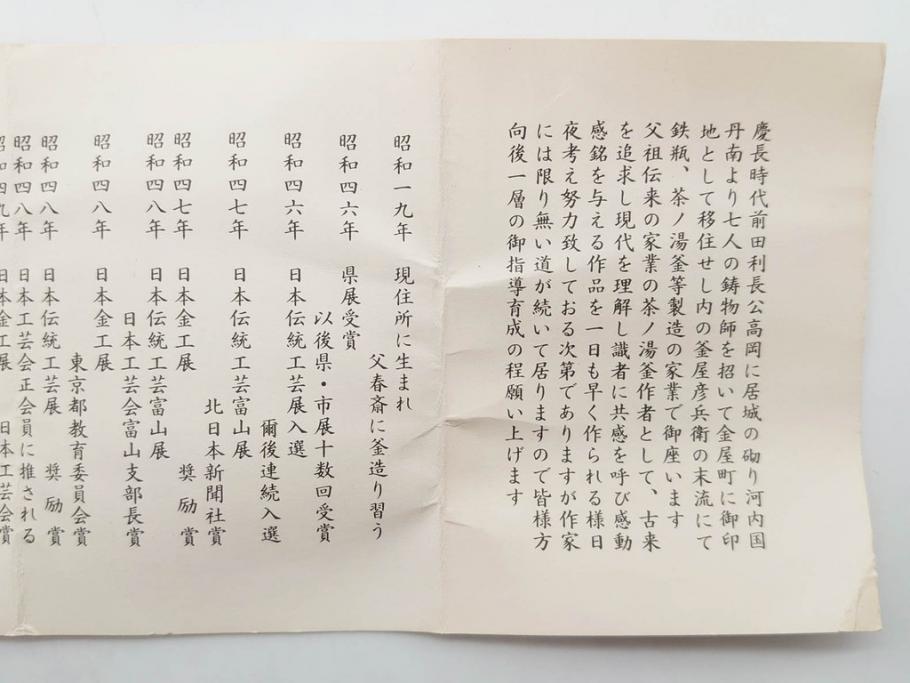 慶長時代前田利長公高岡に居城の砌り河内国
丹南より七人の鋳物師を招いて金屋町に御印
地として移住せし内の釜屋彦兵衛の末流にて
鉄瓶、茶ノ湯釜等製造の家業で御座います
父祖伝来の家業の茶ノ湯釜作者として、古来
を追求し現代を理解し識者に共感を呼び感動
感銘を与える作品を一日も早く作られる様日
夜考え努力致しておる次第でありますが作家
には限り無い道が続いて居りますので皆様方
向後一層の御指導育成の程願い上げます
昭和一九年 現住所に生まれ
父春斎に釜造り習う
昭和四六年 県展受賞
以後県・市展十数回受賞
昭和四六年 日本伝統工芸展入選
爾後連続入選
昭和四七年 日本伝統工芸富山展
北日本新聞社賞
昭和四七年 日本金工展 奨励賞
昭和四八年 日本伝統工芸富山展
日本工芸会富山支部長賞
昭和四八年 日本金工展
東京都教育委員会賞
昭和四八年 日本伝統工芸展 奨励賞
昭和四八年 日本工芸会正会員に推される
昭和四九年 日本金工展 日本工芸会賞